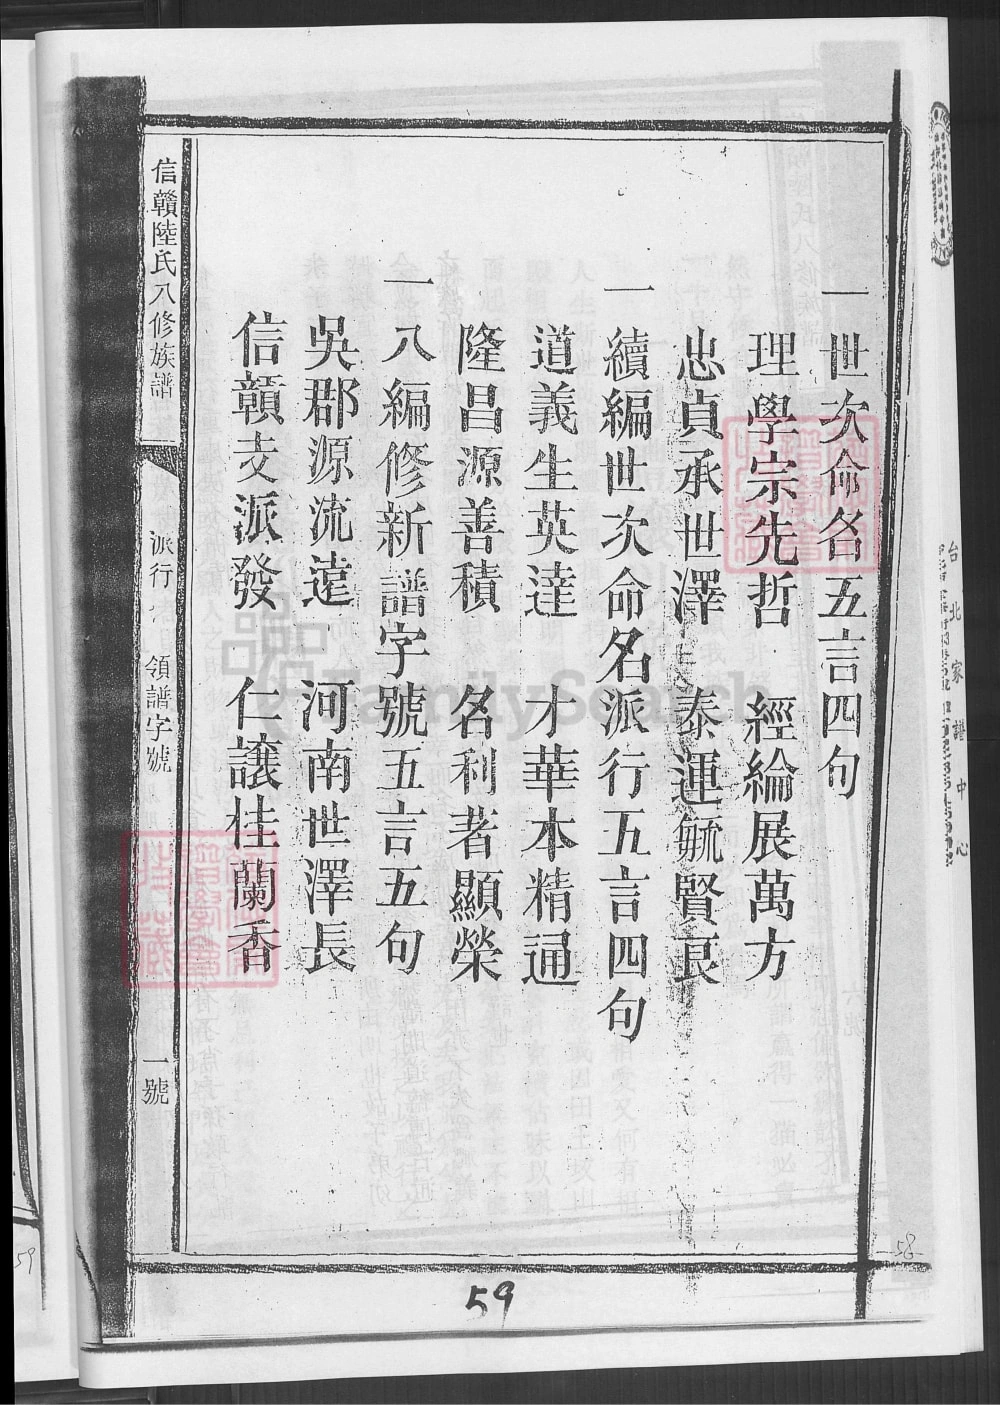 一世次命名五言四句
理學宗先哲 經綸展萬方
忠貞承世澤 泰運毓賢良
一續編世次命名派行五言四句
道義生英達 才華本精通
隆昌源善積 名利著顯榮
一八編修新譜字號五言五句
吳郡源流遠 河南世澤長
信贛支派發 仁讓桂蘭香
信贛陸氏八修族譜
派行 領譜字號
一號
59
58
59
台北家譜中心
FamilySearch